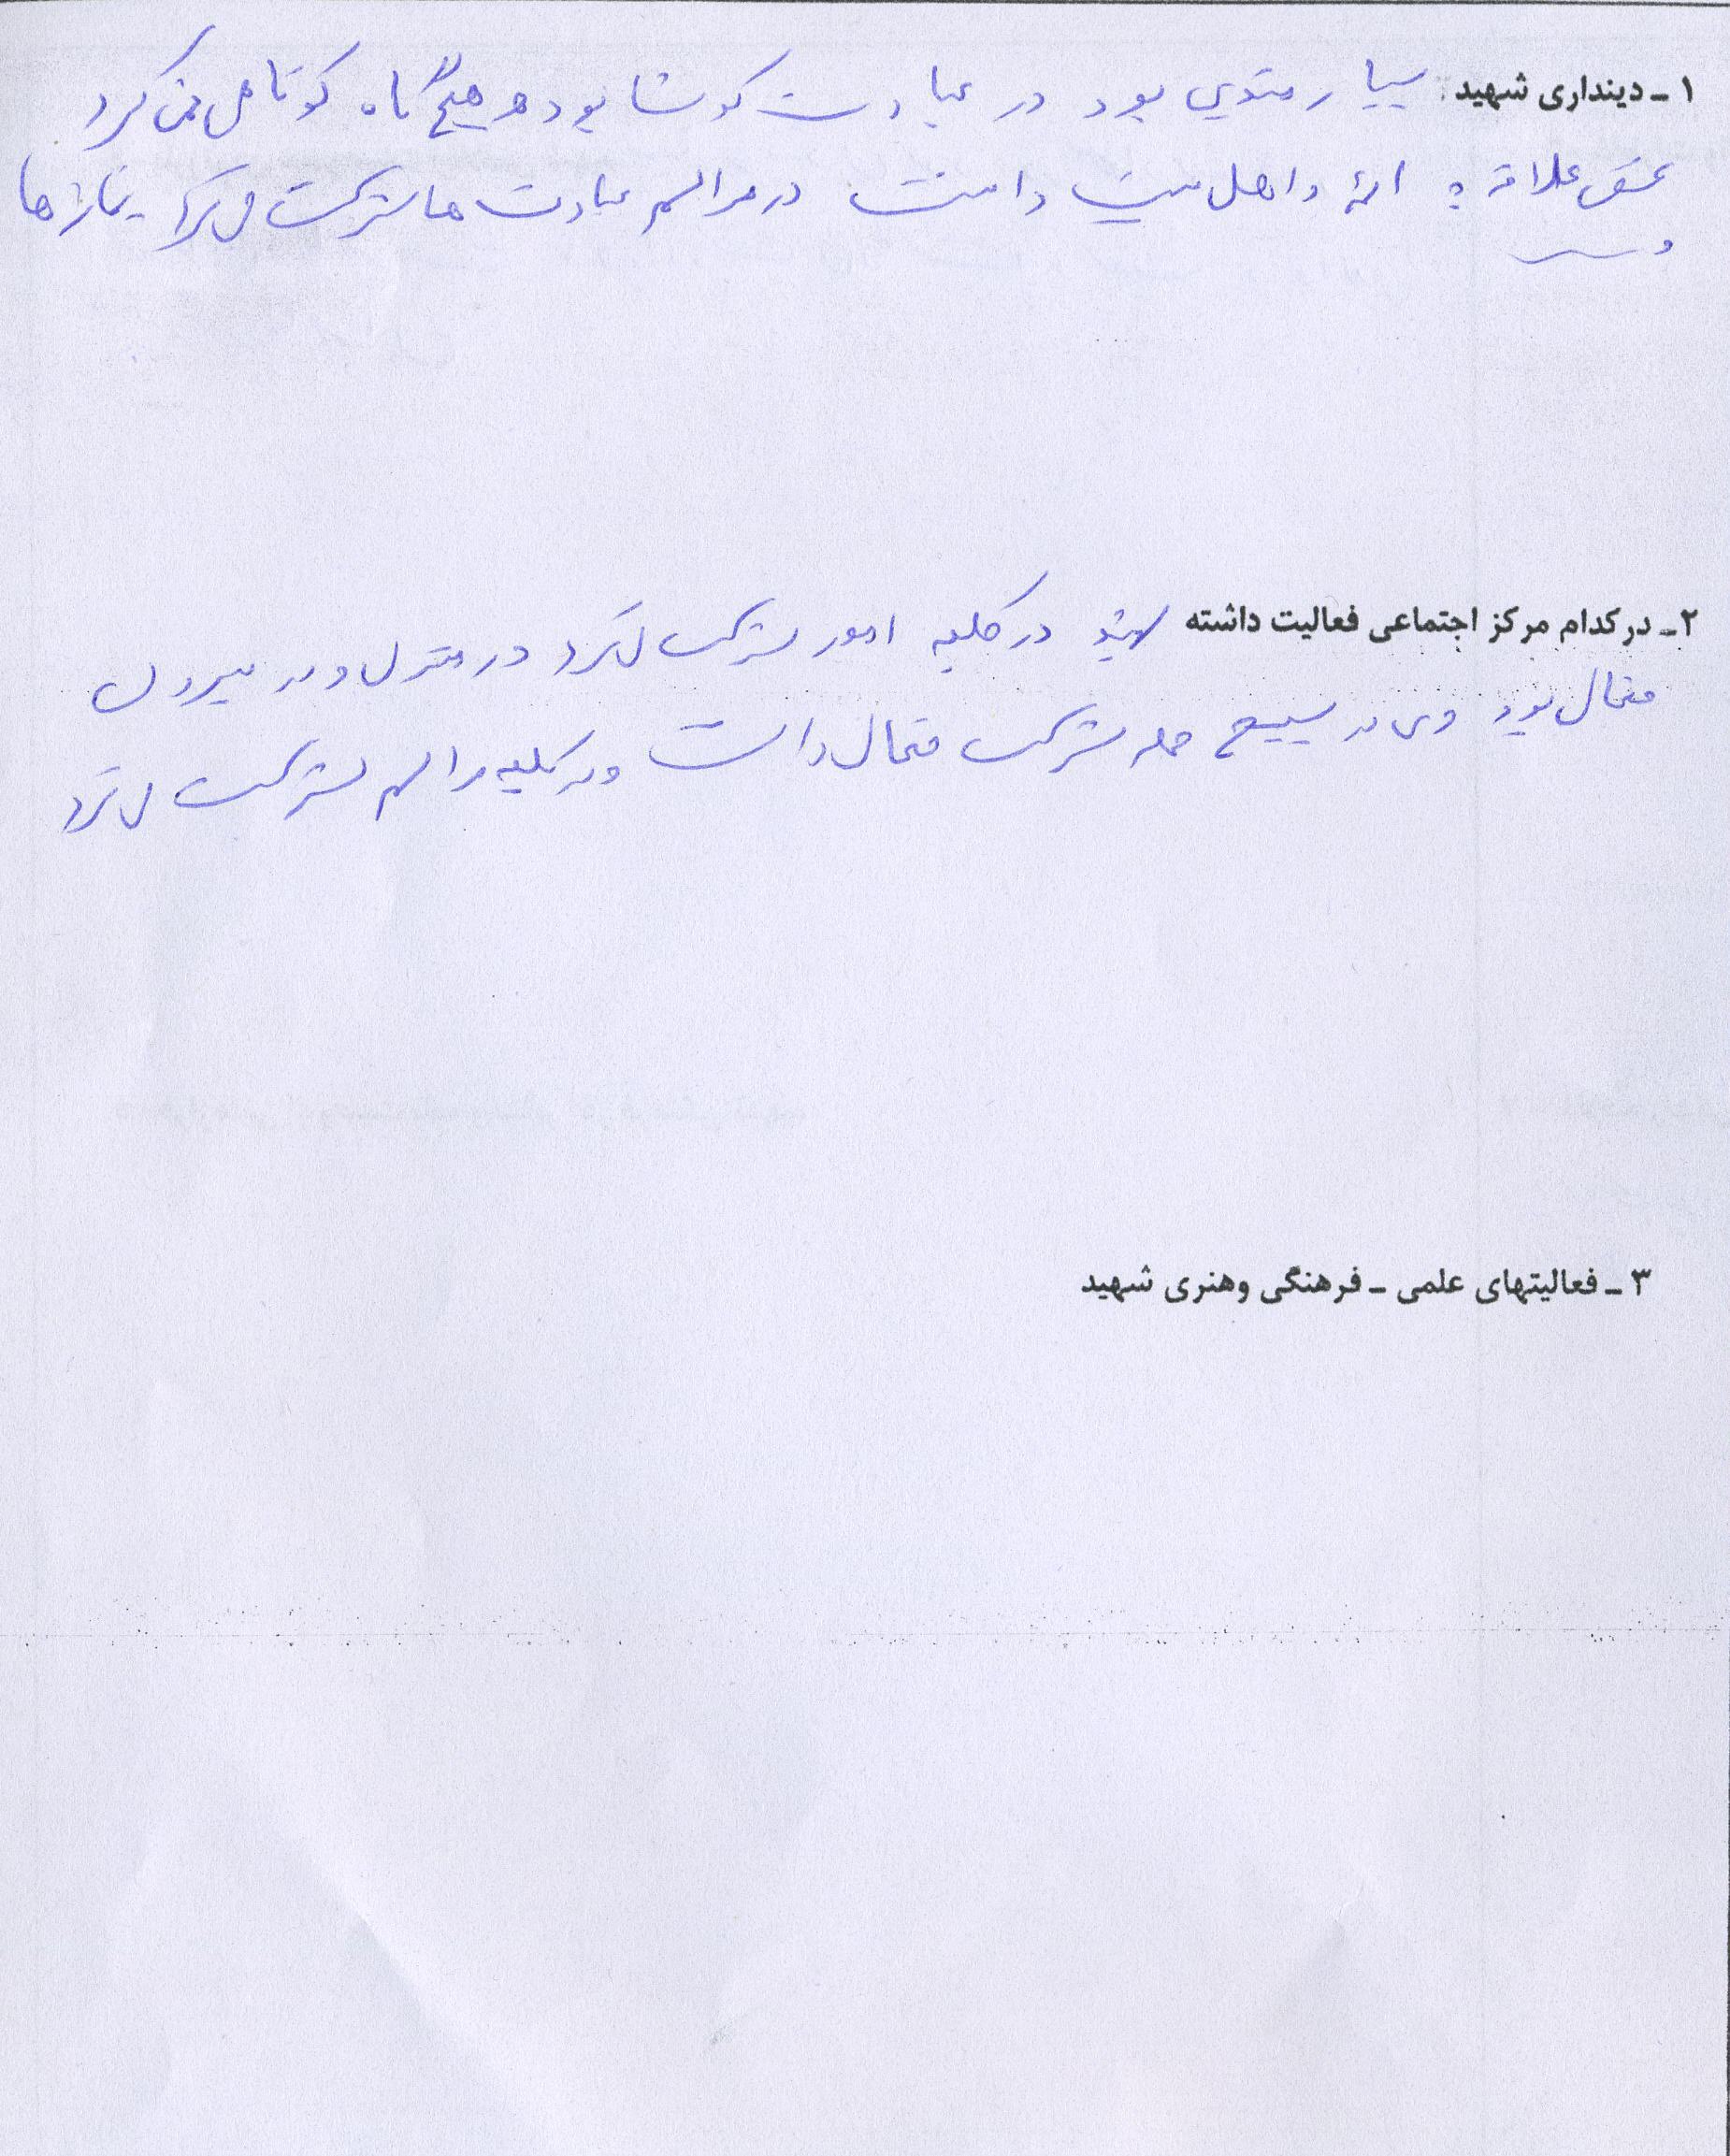 ۱ ـ دینداری شهید: بسیار متدین بود در عبادت کوشا بود و هیچ گاه کوتاهی نمی کرد
عشق علاقه به ائمه و اهل بیت داشت در مراسم عبادت ها شرکت می کرد نمازها
و
۲ ـ در کدام مرکز اجتماعی فعالیت داشته در کلیه امور شرکت می کرد در منزل و در بیرون
فعال بود وی در بسیج محله شرکت فعال داشت و در کلیه مراسم شرکت می کرد
۳ ـ فعالیتهای علمی ـ فرهنگی وهنری شهید